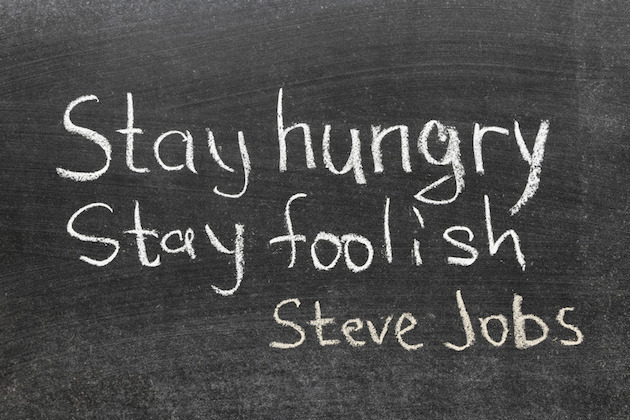 Stay hungry
Stay foolish
Steve Jobs